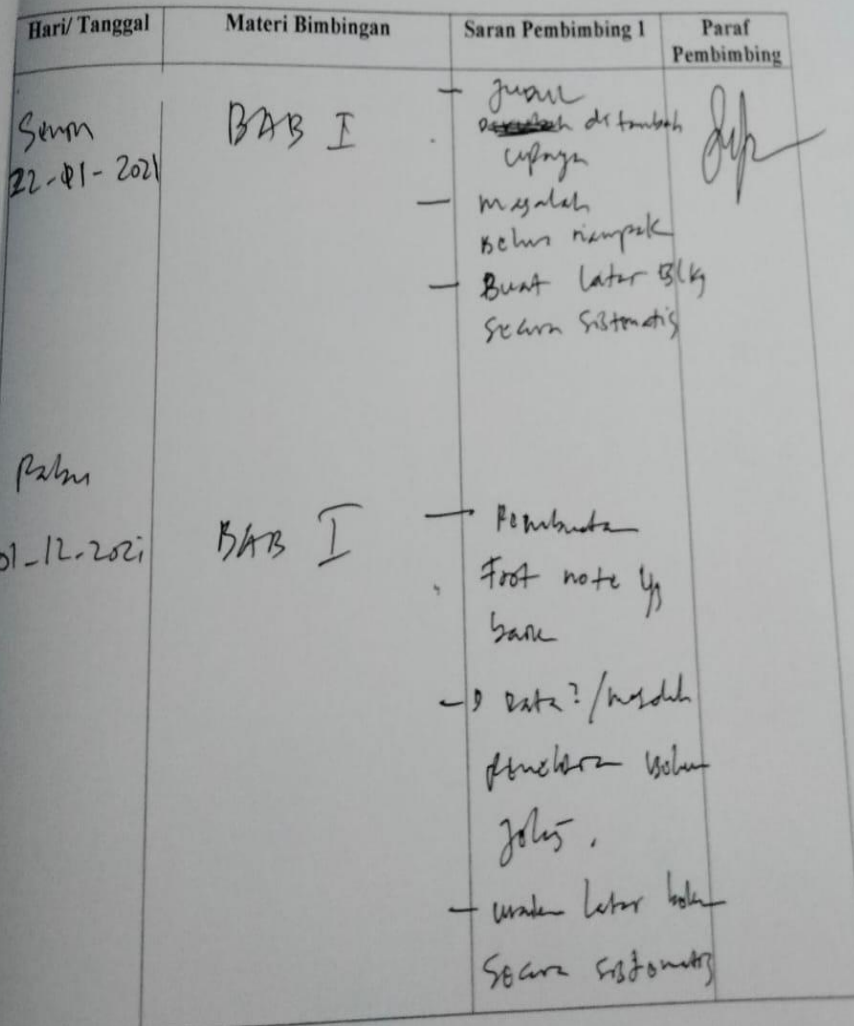 Hari/ Tanggal Materi Bimbingan Saran Pembimbing 1 Paraf Pembimbing
Senin
22-01-2021
BAB I
- Judul
di tambah
upaya
- masalah
Belum nampak
- Buat latar Blkg
Secara Sistematis
Rabu
01-12-2021
BAB I
- Pembuatan
Foot note yg
baik
- Data?/masalah
penelitian belum
jelas.
- uraikan latar belakang
Secara sistematis